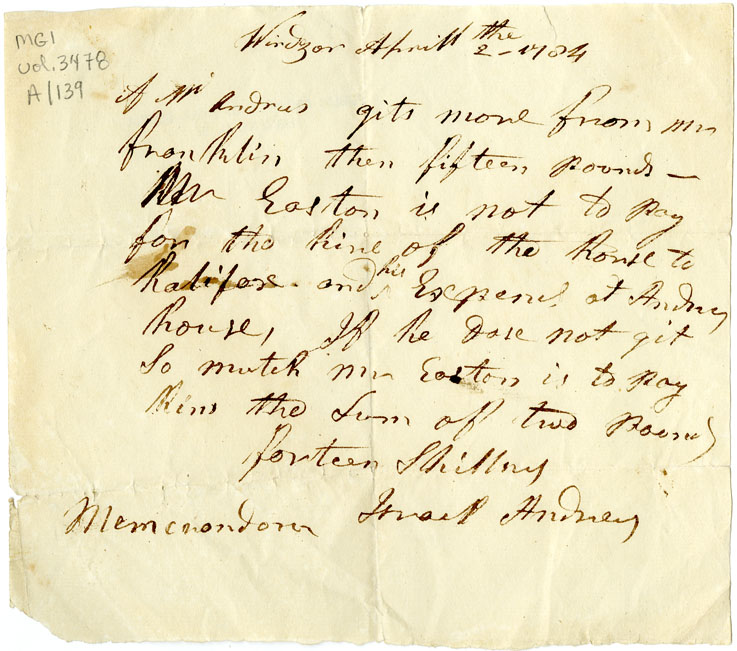 MG1
vol. 3478
A/139
Windzor Aprill the 2 - 1784
if Mr Andrus gits more from mr
franklin then fifteen pounds -
Mr Easton is not to pay
for the hire of the horse to
Halifax and his Expens at Andrus
house, If he dose not git
So mutch mr Easton is to pay
him the Sum of two pounds
forteen Shillns
Memorandom Israel Andrus